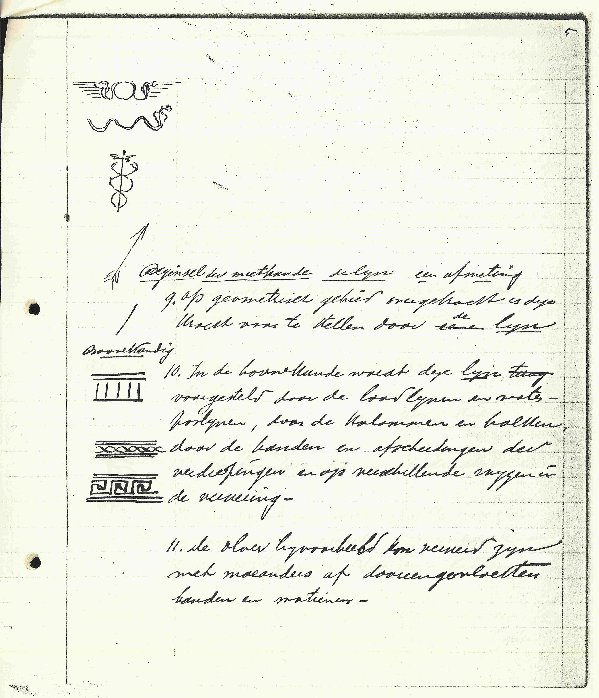 5
Beginsel der meetkunde de lijn een afmeting
9. op geometrisch gebied overgebracht is deze
kracht voor te stellen door eener de lijn
Bouwkundig
10. In de bouwkunde wordt deze lijn
voorgesteld door de loodlijnen en water-
paslijnen, door de kolommen en balken,
door de banden en afscheidingen der
verdiepingen en op verschillende wijzen in
de versiering –
11. de vloer bijvoorbeeld kan versierd zijn
met maeanders of dooreengevlochten
banden en motieven –